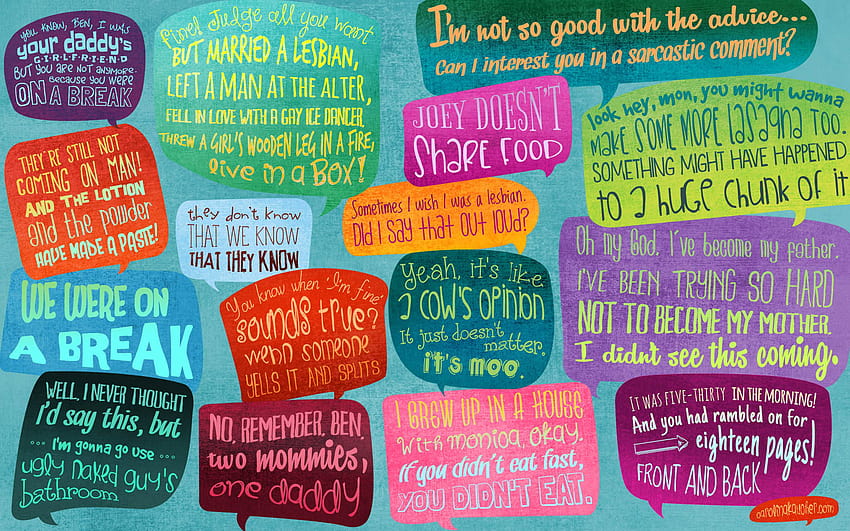 YOU KNOW, BEN, I WAS
your DADDY'S
GIRLFRIEND
BUT YOU ARE NOT ANYMORE.
BECAUSE YOU WERE
ON A BREAK
fine! Judge all you want
BUT MARRIED A LESBIAN,
LEFT A MAN AT THE ALTER,
FELL IN LOVE WITH A GAY ICE DANCER,
THREW A GIRL'S WOODEN LEG IN A FIRE,
live in a BOX!
I'm not so good with the advice...
Can I interest you in a sarcastic comment?
JOEY DOESN'T
SHARE FOOD
look hey, mon, you might wanna
MAKE SOME MORE LASAGNA TOO.
SOMETHING MIGHT HAVE HAPPENED
to a huge chunk of it
THEY'RE STILL NOT
COMING ON MAN!
AND THE LOTION
and the powder
HAVE MADE A PASTE!
they don't know
THAT WE KNOW
THAT THEY KNOW
Sometimes I wish I was a lesbian.
Did I say that out loud?
Oh my God, I've become my father.
I'VE BEEN TRYING SO HARD
NOT TO BECOME MY MOTHER.
I didn't see this coming.
WE WERE ON
A BREAK
You know when 'I'm fine'
sounds true?
wenn someone
YELLS IT AND SPLITS
Yeah, it's like
a cow's opinion
It just doesn't
matter.
it's moo.
WELL, I NEVER THOUGHT
i'd say this, but
... I'm gonna go use ...
ugly naked guy's
bathroom
NO, REMEMBER, BEN.
two mommies,
one daddy
I GREW UP IN A HOUSE
With monica, okay.
If you didn't eat fast,
YOU DIDN'T EAT.
IT WAS FIVE-THIRTY IN THE MORNING!
And you had rambled on for
eighteen pages!
FRONT AND BACK